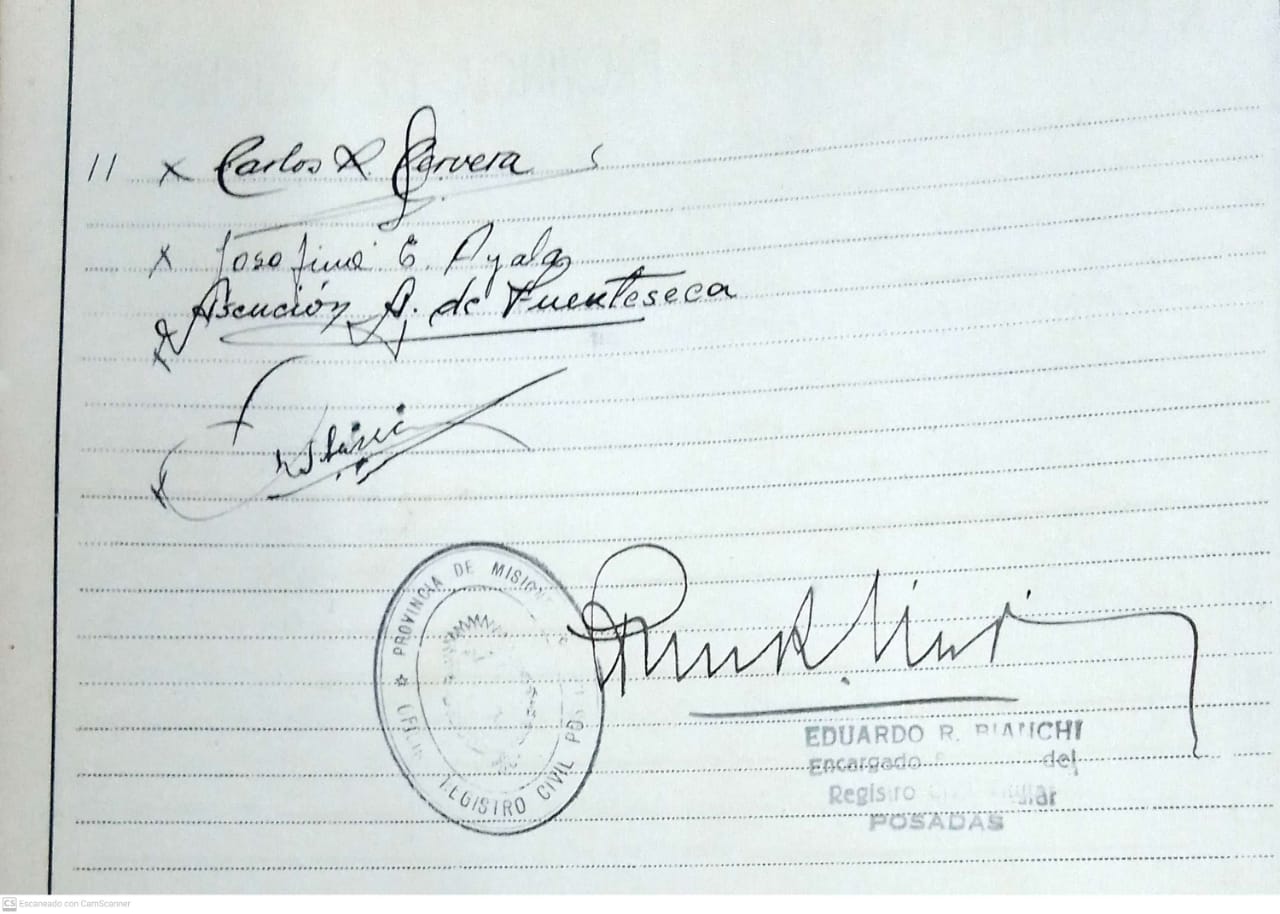 11 x Carlos R. Cervera
x Josefina E. Ayala
x Asención A. de Fuenteseca
x
PROVINCIA DE MISION
REGISTRO CIVIL POS
EDUARDO R. BIANCHI
Encargado del
Registro
POSADAS
CS Escaneado con CamScanner